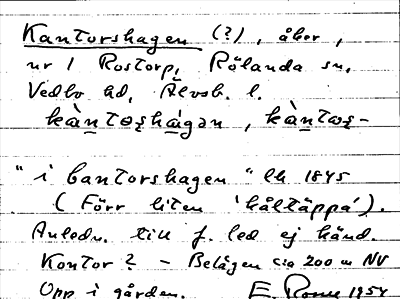 Kantorshagen (?), åker,
nr 1 Rostorp, Rölanda sn,
Vedbo hd, Älvsb. l.
kàntoʂhágən, kàntoʂ-
"i cantorshagen" lk 1845
(Förr liten 'håltäppa').
Anledn. till f. led ej känd.
Kontor? – Belägen c:a 200 m NV
Upp i gården. E. 1954